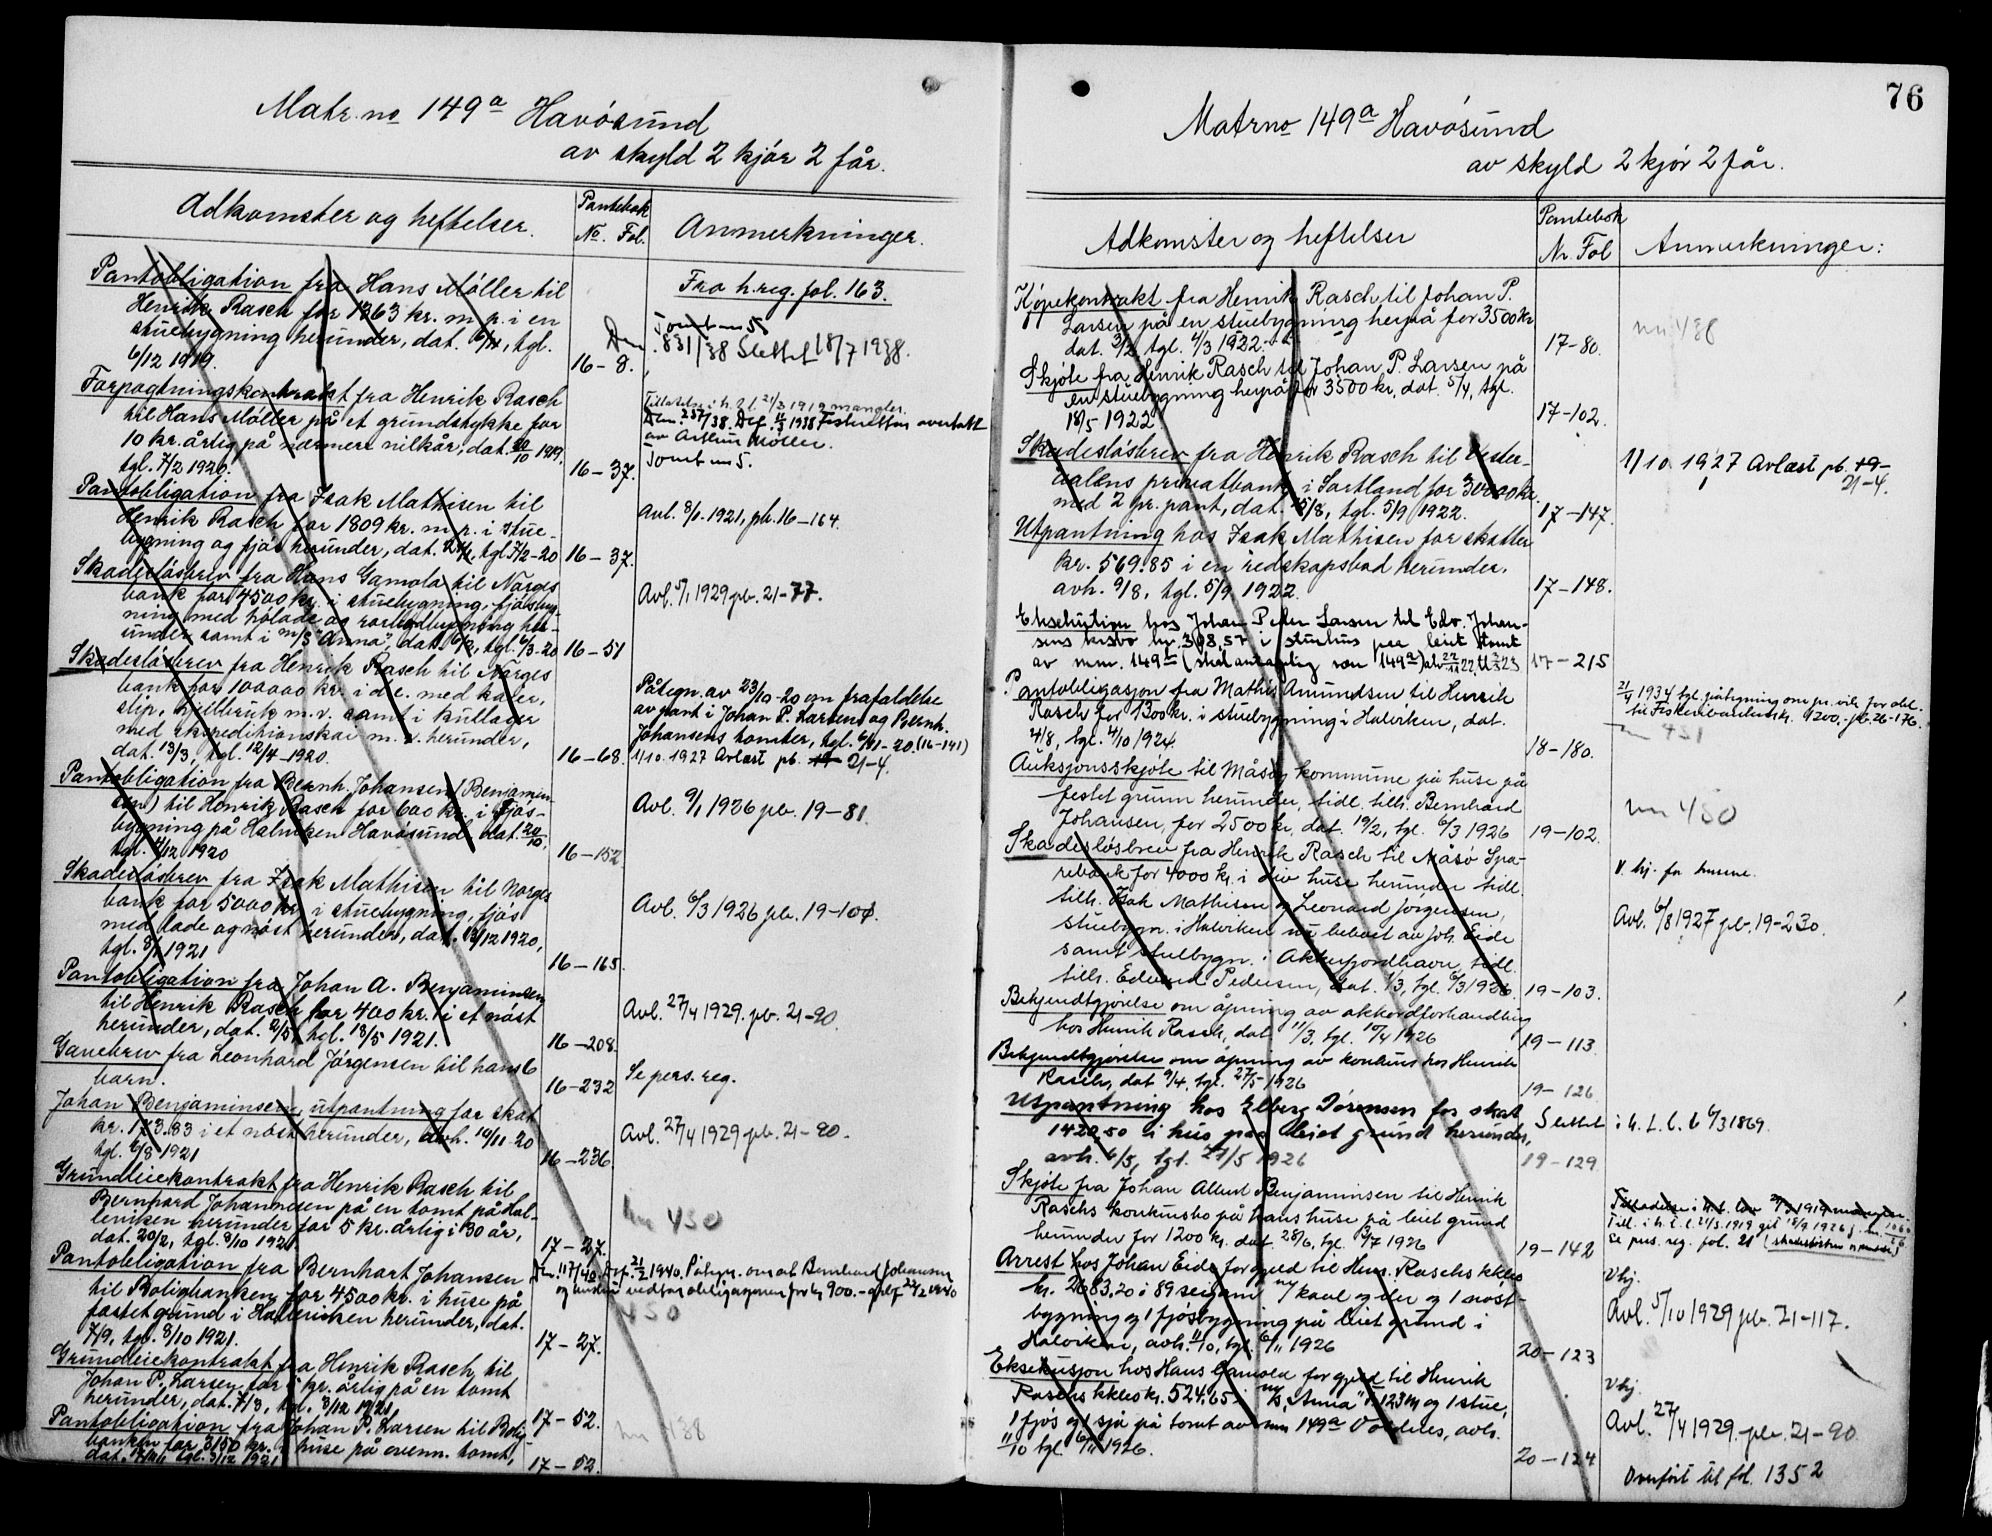 Matr. no 149a Havösund
av skyld 2 kjör 2 får.
Adkomster og heftelser.
Pantebok
No. Fol.
Anmerkninger.
Fra h.reg. fol. 163.
Pantobligation fra Hans Möller til
Henrik Rasch for 1363 kr. m. p. i en
stuebygning herunder, dat. tgl.
6/12 1919.
16-8.
Tomt no 5
Dnr. 831/38 Slettet 18/7 1938.
Forpagtningskontrakt fra Henrik Rasch
til Hans Möller på et grundstykke for
10 kr. årlig på nærmere vilkår, dat. 20/10 1919,
tgl. 7/2 1920.
16-37.
Tilladelse i h. t. l. 21/3 1919 mangler.
Dnr. 257/38. Festeretten overtatt
av Arthur Möller.
Tomt no 5.
Pantobligation fra Isak Mathisen til
Henrik Rasch for 1809 kr. m. p. i stue-
bygning og fjös herunder, dat. tgl. 7/2-20
16-37.
Avl. 8/1. 1921, pb. 16-164.
Skadeslösbrev fra Hans Gamola til Norges
bank for 4500 kr. i stuebygning, fjösbyg-
ning med hölade og her-
under samt i m/s "Anna", dat. tgl. 6/3-20
16-51
Avl. 5/1 1929 pb. 21-77.
Skadeslösbrev fra Henrik Rasch til Norges
bank for 100000 kr. i d. e. med kaier,
slip, m. v. samt i kullager
med ekspeditionskai m. v. herunder,
dat. 13/3, tgl. 12/4-1920.
16-68.
Påtegn. av 23/10-20 om frafaldelse
av pant i Johan P. Larsens og Bernh.
Johansens tomter, tgl. 6/11-20 (16-141)
1/10. 1927 Avlæst pb. 21-4.
Pantobligation fra Bernh. Johansen (Benjamin-
sen) til Henrik Rasch for 600 kr. i fjös-
bygning på Halviken Havösund, dat. 20/10,
tgl. 4/12 1920
16-152
Avl. 9/1 1926 pb. 19-81.
Skadeslösbrev fra Isak Mathisen til Norges
bank for 5000 kr. i stuebygning, fjös
med lade og nöst herunder, dat. 13/12 1920,
tgl. 8/1 1921
16-165.
Avl. 6/3 1926 pb. 19-101.
Pantobligation fra Johan A. Benjaminsen
til Henrik Rasch for 400 kr. i et nöst
herunder, dat. 2/5, tgl. 18/5 1921.
16-208.
Avl. 27/4 1929. pb. 21-90.
Gavebrev fra Leonhard Jörgensen til hans 6
barn.
16-232
Se pers. reg.
Johan Benjaminsen, utpantning for skat
kr. 173.83 i et nöst herunder, avh. 10/11-20
tgl. 6/8 1921
16-236.
Avl. 27/4 1929 pb. 21-90.
Grundleiekontrakt fra Henrik Rasch til
Bernhard Johannesen på en tomt på Hal-
leviken herunder for 5 kr. årlig i 30 år,
dat. 20/2, tgl. 8/10 1921
17-27.
nr 450
Pantobligation fra Bernhart Johansen
til Boligbanken for 4500 kr. i huse på
festet grund i Halleviken herunder, dat.
7/9, tgl. 8/10 1921.
17-27.
Dnr. 117/40. Påtegn. om at Bernhard Johansen
450
Grundleiekontrakt fra Henrik Rasch til
Johan P. Larsen for 5 kr. årlig på en tomt
herunder, dat. 7/3, tgl. 3/12 1921,
17-52.
Pantobligation fra Johan P. Larsen til Bolig-
banken for 3150 kr. i huse på ovenn. tomt,
dat. tgl. 3/12 1921
17-52.
nr 438
76
Matr no 149a Havösund
av skyld 2 kjör 2 får.
Adkomster og heftelser
Pantebok
Nr. Fol
Anmerkninger:
Kjöpekontrakt fra Henrik Rasch til Johan P.
Larsen på en stuebygning herpå for 3500 kr
dat. 3/2, tgl. 4/3 1922.
17-80.
nr 438
Skjöte fra Henrik Rasch til Johan P. Larsen på
en stuebygning herpå for 3500 kr, dat. 5/4, tgl.
18/5 1922
17-102.
Skadeslösbrev fra Henrik Rasch til Vester-
ålens privatbank i Sortland for 30000 kr.
med 2 pr. pant, dat. 15/8, tgl. 5/9 1922.
17-147.
1/10 1927 Avlæst pb. 19-
21-4.
Utpantning hos Isak Mathisen for skatter
kr. 569.85 i en redskapsbod herunder.
avh. 9/8, tgl. 5/9 1922.
17-148.
Eksekution hos Johan Peter Larsen til Edv. Johan-
sens kr. 308,57 i stuehus paa leiet tomt
av mnr. 149 (skal antagelig være 149a)
17-215
Pantobligasjon fra Mathis Amundsen til Henrik
Rasch for 1300 kr. i stuebygning i Halviken, dat.
4/8, tgl. 4/10 1924.
18-180.
21/4 1934 tgl. påtegning om pr. vik. for obl.
til Fiskeribanken kr. 1200,- pb. 26-176.
nr 451
Auksjonsskjöte til Måsöy kommune på huse på
festet grunn herunder, tidl. tilh. Bernhard
Johansen for 2500 kr, dat. 19/2, tgl. 6/3 1926
19-102.
nr 450
Skadeslösbrev fra Henrik Rasch til Måsö Spa-
rebank for 4000 kr. i div huse herunder tidl.
tilh. Isak Mathisen og Leonard Jörgensen,
stuebygn. i Halviken nu bebodt av Joh. Eide
samt stuebygn. i Akkarfjordhavn, tidl.
tilh. Edvard Pedersen, dat. 1/3, tgl. 6/3 1926.
19-103.
V. hj. for husene.
Avl. 6/8 1927 pb. 19-230.
Bekjendtgjörelse om åpning av akkordforhandling
hos Henrik Rasch, dat 11/3, tgl. 10/4 1926
19-113.
Bekjendtgjörelse om åpning av konkurs hos Henrik
Rasch, dat 9/4, tgl. 27/5 1926
19-126.
Utpantning hos Elberg Sörensen for skat
1420.50 i hus paa leiet grund herunder,
avh. 6/5, tgl. 27/5 1926
19-129
Slettet i h. t. l. 6/3 1869.
Skjöte fra Johan Albert Benjaminsen til Henrik
Raschs konkursbo på hans huse på leiet grund
herunder for 1200 kr. dat. 28/6, tgl. 3/7 1926
19-142
Tilladelse i h. t. lov 21/3 1919 mangler.
Till. i h. t. l. 21/3 1919 git 18/9 1926 j. nr.
se pers. reg. fol. 21
Arrest hos Johan Eide for gjeld til Henr. Raschs kkbo
kr. 2683,20 i 89 og 1 nöst-
bygning og 1 fjösbygning på leiet grund i
Halviken, avh. 11/10, tgl. 6/11 1926
20-123
V hj.
Avl. 5/10 1929 pb. 21-117.
Eksekusjon hos Hans Gamola for gjeld til Henrik
Raschs kkbo kr. 524,65 i m/s "Anna" og 1 stue,
1 fjös og 1 sjå på tomt av mnr 149a avh.
11/10 tgl. 6/11 1926.
20-124
V hj.
Avl. 27/4 1929. pb. 21-90
Overfört til fol. 1352